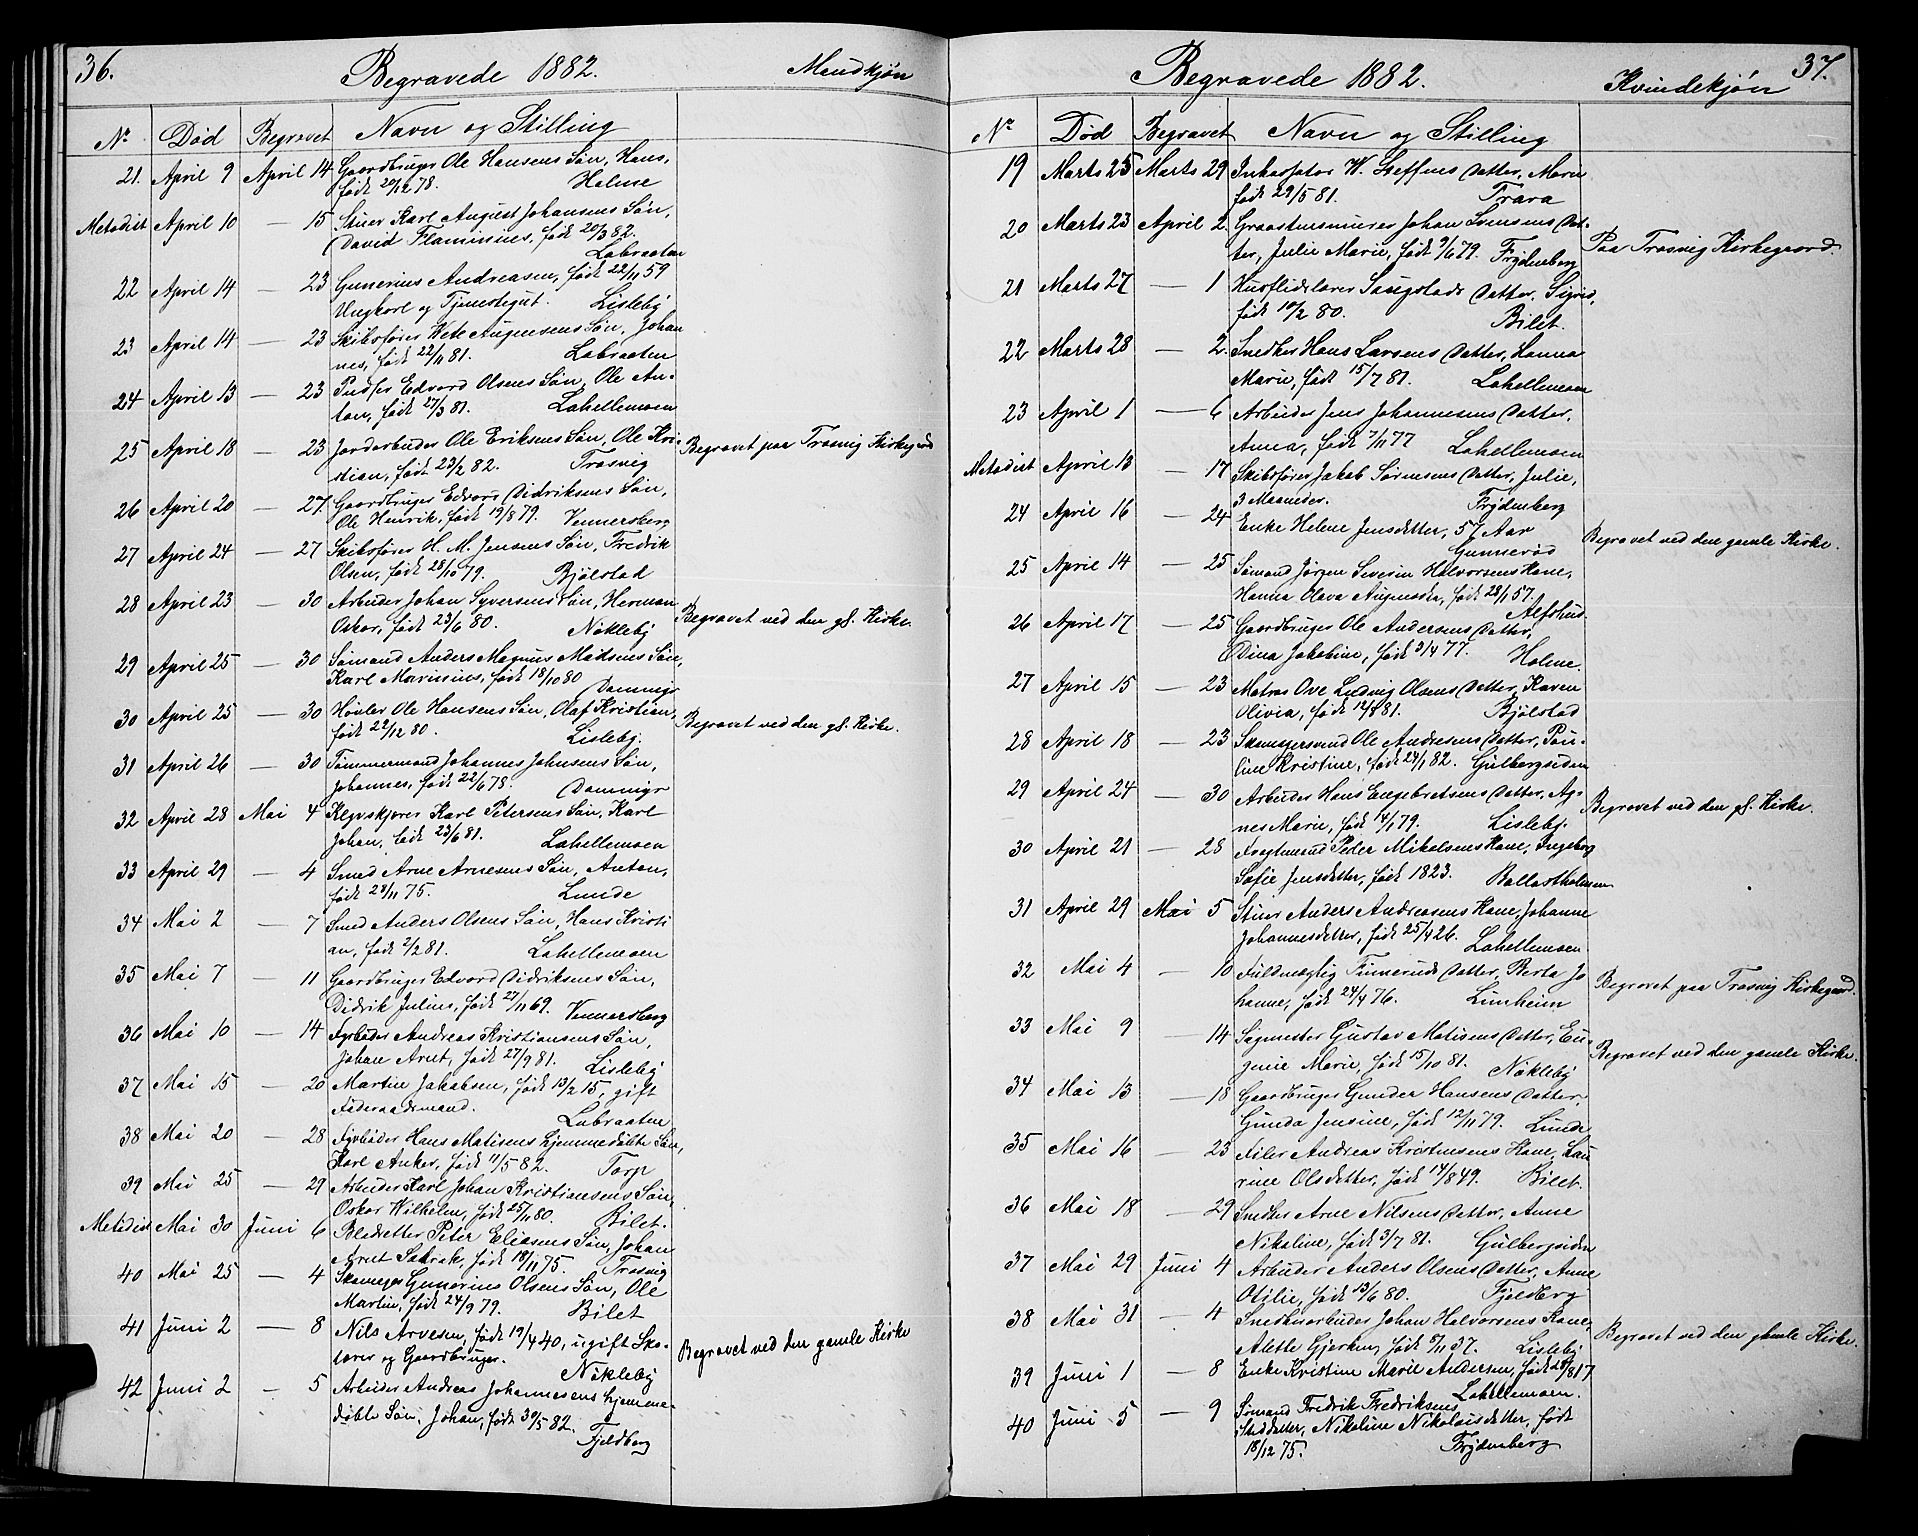 36.
Begravede 1882.
Mandkjøn
No Død Begravet Navn og Stilling
21. April 9 April 14 Gaardbruger Ole Hansens Søn, Hans,
født 20/12 78. Holme
Metodist April 10 — 15 Stuer Karl August Johansens Søn,
David Flaminius, født 20/3 82.
Labraaten
22 April 14 — 23 Gunerius Andreasen, født 22/11 59
Ungkarl og Tjenestegut. Lisleby
23 April 14 — 23 Skibsfører Wete Augensens Søn, Johan
nes, født 22/11 81. Labraaten
24 April 13 — 23 Pudser Edvard Olsens Søn, Ole An-
ton, født 27/3 81. Lahellemoen
25 April 18 — 23 Jordarbeider Ole Eriksens Søn, Ole Kri- Begravet paa Trosvig Kirkegaard
stian, født 23/2 82. Trosvig
26 April 20 — 27 Gaardbruger Edvard Didriksens Søn,
Ole Henrik, født 19/8 79. Vennersberg
27 April 24 — 27 Skibsfører H. M. Jensens Søn, Fredrik
Olsen, født 28/10 79. Bjølstad
28 April 23 — 30 Arbeider Johan Syversens Søn, Herman Begravet ved den gl. Kirke.
Oskar, født 23/6 80. Nøkleby
29 April 25 — 30 Sømand Anders Magnus Madsens Søn,
Karl Marinius, født 18/10 80
Dammyr
30 April 25 — 30 Høvler Ole Hansens Søn, Olaf Kristian, Begravet ved den gl. Kirke.
født 22/12 80. Lisleby.
31 April 26 — 30 Tømmermand Johannes Johnsens Søn,
Johannes, født 22/6 78. Dammyr
32 April 28 Mai 4 Klepskjærer Karl Petersens Søn, Karl
Johan, født 23/6 81. Lahellemoen
33 April 29 — 4 Smed Arne Arnesens Søn, Anton,
født 23/11 75. Lunde
34 Mai 2 — 7 Smed Anders Olsens Søn, Hans Kristi
an, født 2/2 81. Lahellemoen
35 Mai 7 — 11 Gaardbruger Edvard Didriksens Søn,
Didrik Julius, født 27/11 69. Vennersberg
36 Mai 10 — 14 Fyrbøder Andreas Kristiansens Søn,
Johan Arnt, født 27/9 81. Lisleby
37 Mai 15 — 20 Martin Jakobsen, født 13/2 15, gift
Føderaadsmand. Labraaten
38 Mai 20 — 28 Fyrbøder Hans Matisens hjemmedøbte Søn,
Karl Anker, født 11/5 82. Torp
39 Mai 25 — 29 Arbeider Karl Johan Kristiansens Søn,
Oskar Wilhelm, født 25/11 80. Bilet.
Metodist Mai 30 Juni 6 Bladsetter Peter Eliasens Søn, Johan
Arnt Sakrak, født 18/11 75. Trosvig
40 Mai 25 — 4 Skomager Gunerius Olsens Søn, Ole
Martin, født 24/9 79. Bilet
41 Juni 2 — 8 Nils Arvesen, født 19/4 40, ugift Sko-
lærer og Gaardbruger. Begravet ved den gamle Kirke
Nøkleby
42 Juni 2 — 5 Arbeider Andreas Johannesens hjemme-
døbte Søn, Johan, født 30/5 82.
Fjeldberg
37.
Begravede 1882.
Kvindekjøn
No Død Begravet Navn og Stilling
19 Marts 25 Marts 29 Inkassator W. Steffens Datter, Marie
født 29/5 81. Trara
20 Marts 23 April 2 Graastensmurer Johan Svensens Dat-
ter, Julie Marie, født 9/6 79. Frydenberg Paa Trosvig Kirkegaard.
21 Marts 27 — 1 Husflidslærer Saugstads Datter, Sigrid,
født 10/2 80. Bilet.
22 Marts 28 — 2. Snedker Hans Larsens Datter, Hanna
Marie, født 15/7 81. Lahellemoen
23 April 1 — 6 Arbeider Jens Johannesens Datter,
Anna, født 7/11 77 Lahellemoen
Metodist April 13 — 17 Skibsfører Jakob Sørensens Datter, Julie,
3 Maaneder. Frydenberg
24 April 16 — 24 Enke Helene Jensdatter, 57 Aar Begravet ved den gamle Kirke.
Gunnerød
25 April 14 — 25 Sømand Jørgen Severin Halvorsens Kone,
Hanna Olava Augensdatter, født 28/1 57.
Alfshus.
26 April 17 — 25 Gaardbruger Ole Andersens Datter,
Dina Jakobine, født 3/4 77. Holme.
27 April 15 — 23 Matros Ove Ludvig Olsens Datter, Karen
Olivia, født 12/8 81. Bjølstad
28 April 18 — 23 Skomagersvend Ole Andresens Datter, Pau-
line Kristine, født 24/1 82. Gulbergsiden
29 April 24 — 30 Arbeider Hans Engebretsens Datter, Ag-
nes Marie, født 14/1 79. Lisleby. Begravet ved den gl. Kirke.
30 April 21 — 28 Fragtmand Peder Mikelsens Kone, Ingeborg
Sofie Jensdatter, født 1823. Ballastholmen
31 April 29 Mai 5 Stuer Anders Andreasens Kone, Johanne
Johannesdatter, født 25/4 26. Lahellemoen
32 Mai 4 — 10 Fuldmægtig Finneruds Datter, Berta Jo
hanne, født 24/4 76. Limheim Begravet paa Trosvig Kirkegaard.
33 Mai 9 — 14 Sagmester Gustav Matisens Datter, Eu-
genie Marie, født 15/10 81. Nøkleby Begravet ved den gamle Kirke.
34 Mai 13 — 18 Gaardbruger Gunder Hansens Datter,
Gunda Jensine, født 12/11 79. Lunde
35 Mai 16 — 23 Filer Andreas Kristensens Kone, Lau
rine Olsdatter, født 14/8 49. Bilet.
36 Mai 18 — 29 Snedker Arne Nilsens Datter, Anne
Nikoline, født 3/7 81. Gulbergsiden
37 Mai 29 Juni 4 Arbeider Anders Olsens Datter, Anne
Otilie, født 13/6 80. Fjeldberg
38 Mai 31 — 4 Snedkerarbeider Johan Halvorsens Kone,
Alette Gjerken, født 6/11 37. Lisleby Begravet ved den gamle Kirke.
39 Juni 1 — 8 Enke Kristine Marie Andersen, født 28/8 17
Lahellemoen.
40 Juni 5 — 9 Sømand Fredrik Fredriksens
Steddatter, Nikoline Nikolaisdatter, født
18/12 75. Frydenberg